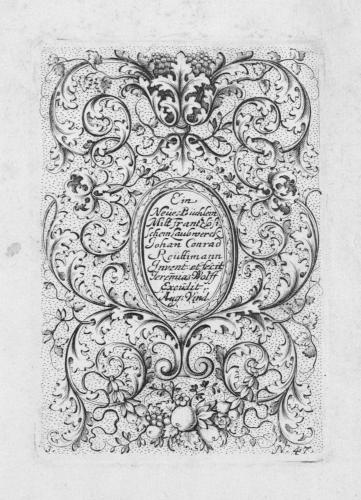 Ein
Neues Buchlein
Mitt frantzö
schem Laubwerck
Johan Conrad
Reuttimann
Invent: et fecit
Jeremias Wolff
Excudit
Aug: Vind:
N. 47.